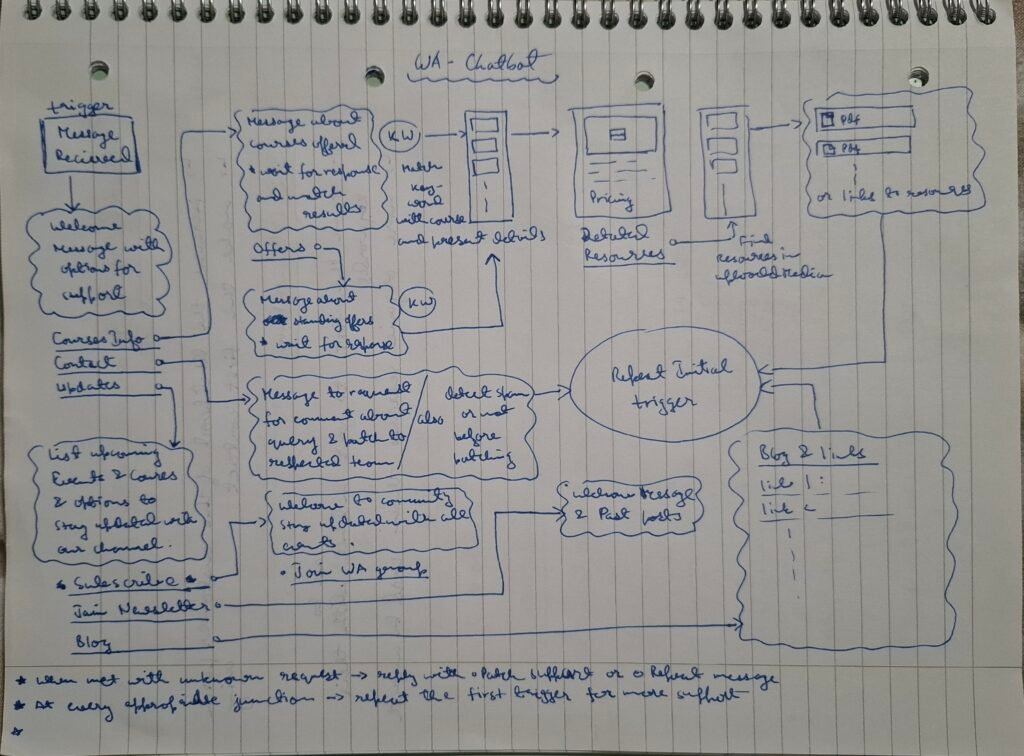 WA - Chatbot
trigger
Message
Recieved
Welcome
Message with
options for
support
Courses Info
Contact
Updates
List upcoming
Events & Courses
& options to
stay updated with
our channel.
Subscribe
Join Newsletter
Blog
Message about
courses offered
* wait for response
and match
results
Offers
KW
Match
key-
word
with course
and present details
Message about
standing offers
* wait for response
KW
Pricing
Related
Resources
Find
Resources in
upload Media
Pdf
Pdf
or links to resources
Message to request
for comment about
query & patch to
respected team
also
detect spam
or not
before
patching
Repeat Initial
trigger
Welcome to community
stay updated with all
events.
• Join WA group
Welcome Message
& Past posts
Blog & links
link 1 :
link
* when met with unknown request → reply with • Patch support or o Repeat message
* At every appropriate junction → repeat the first trigger for more support
*